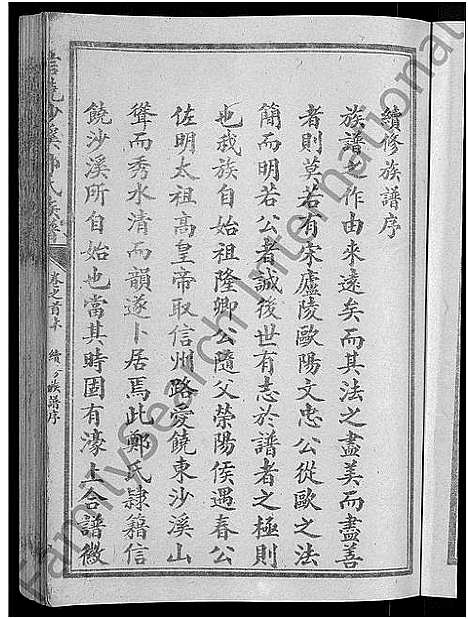 續修族譜序
族譜之作由來遠矣而其法之盡美而盡善
者則莫若有宋廬陵歐陽文忠公從歐之法
簡而明若公者誠後世有志於譜者之極則
也我族自始祖隆卿公隨父榮陽侯遇春公
佐明太祖高皇帝取信州路愛饒東沙溪山
聳而秀水清而韻遂卜居焉此鄭氏隸籍信
饒沙溪所自始也當其時固有濠上合譜徽
信饒沙溪鄭氏族譜
卷之首
續修族譜序
FamilySearch International